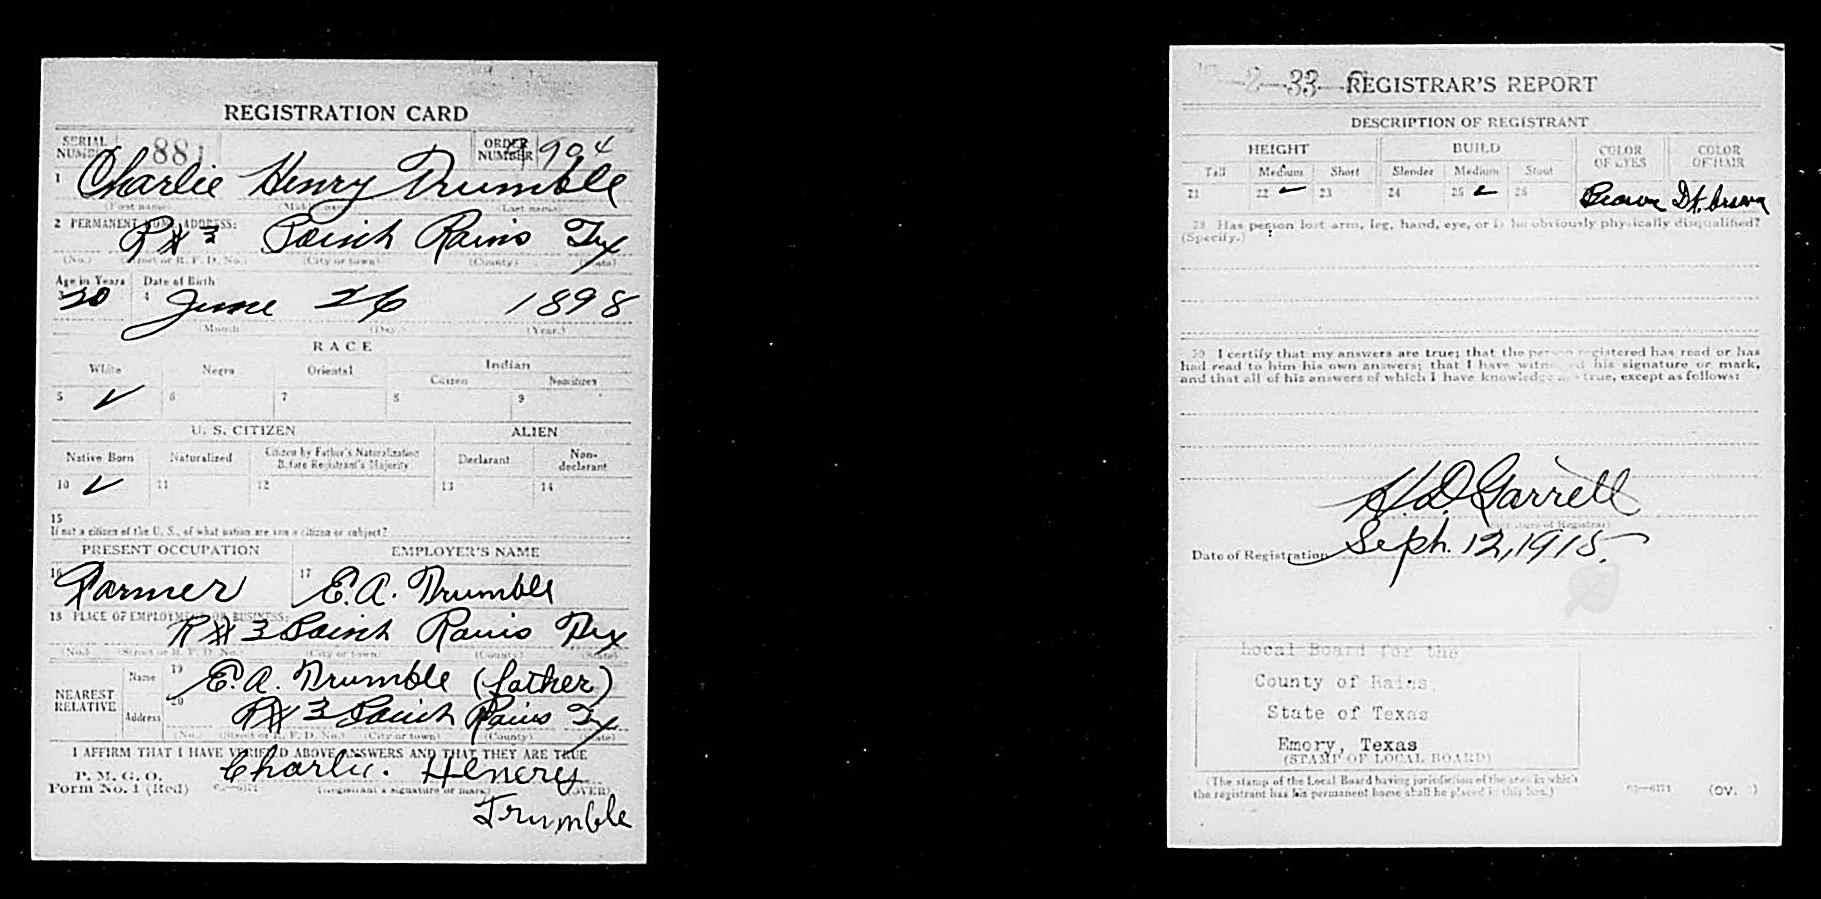 REGISTRATION CARD
SERIAL NUMBER 881
ORDER NUMBER 904
1 Charlie Henry Trumble
(First name) (Middle name) (Last name)
2 PERMANENT HOME ADDRESS:
R#3 Point Rains Tex
(No.) (Street or R. F. D. No.) (City or town) (County) (State)
Age in Years Date of Birth
3 20 4 June 26 1898
(Month) (Day) (Year)
RACE
White Negro Oriental Indian
Citizen Noncitizen
5 ✓ 6 7 8 9
U. S. CITIZEN ALIEN
Native Born Naturalized Citizen by Father's Naturalization Before Registrant's Majority Declarant Non-declarant
10 ✓ 11 12 13 14
15
If not a citizen of the U. S., of what nation are you a citizen or subject?
PRESENT OCCUPATION EMPLOYER'S NAME
16 Farmer 17 E.A. Trumble
18 PLACE OF EMPLOYMENT OR BUSINESS:
R#3 Point Rains Tex
(No.) (Street or R. F. D. No.) (City or town) (County) (State)
NEAREST RELATIVE
Name 19 E.A. Trumble (father)
Address 20 R#3 Point Rains Tx
(No.) (Street or R. F. D. No.) (City or town) (County) (State)
I AFFIRM THAT I HAVE VERIFIED ABOVE ANSWERS AND THAT THEY ARE TRUE
P. M. G. O.
Form No. 1 (Red) Charlie. Hencrey
(Registrant's signature or mark) (OVER)
Trumble
2-33- REGISTRAR'S REPORT
DESCRIPTION OF REGISTRANT
HEIGHT BUILD COLOR OF EYES COLOR OF HAIR
Tall Medium Short Slender Medium Stout
21 22 ✓ 23 24 25 ✓ 26 Brown Dk brown
29 Has person lost arm, leg, hand, eye, or is he obviously physically disqualified?
(Specify.)
30 I certify that my answers are true; that the person registered has read or has
had read to him his own answers; that I have witnessed his signature or mark,
and that all of his answers of which I have knowledge are true, except as follows:
H.D. Garrell
(Signature of Registrar)
Date of Registration Seph. 12, 1918.
Local Board for the
County of Rains,
State of Texas
Emory, Texas
(STAMP OF LOCAL BOARD)
(The stamp of the Local Board having jurisdiction of the area in which
the registrant has his permanent home shall be placed in this box.)
03—6171 (OVER)